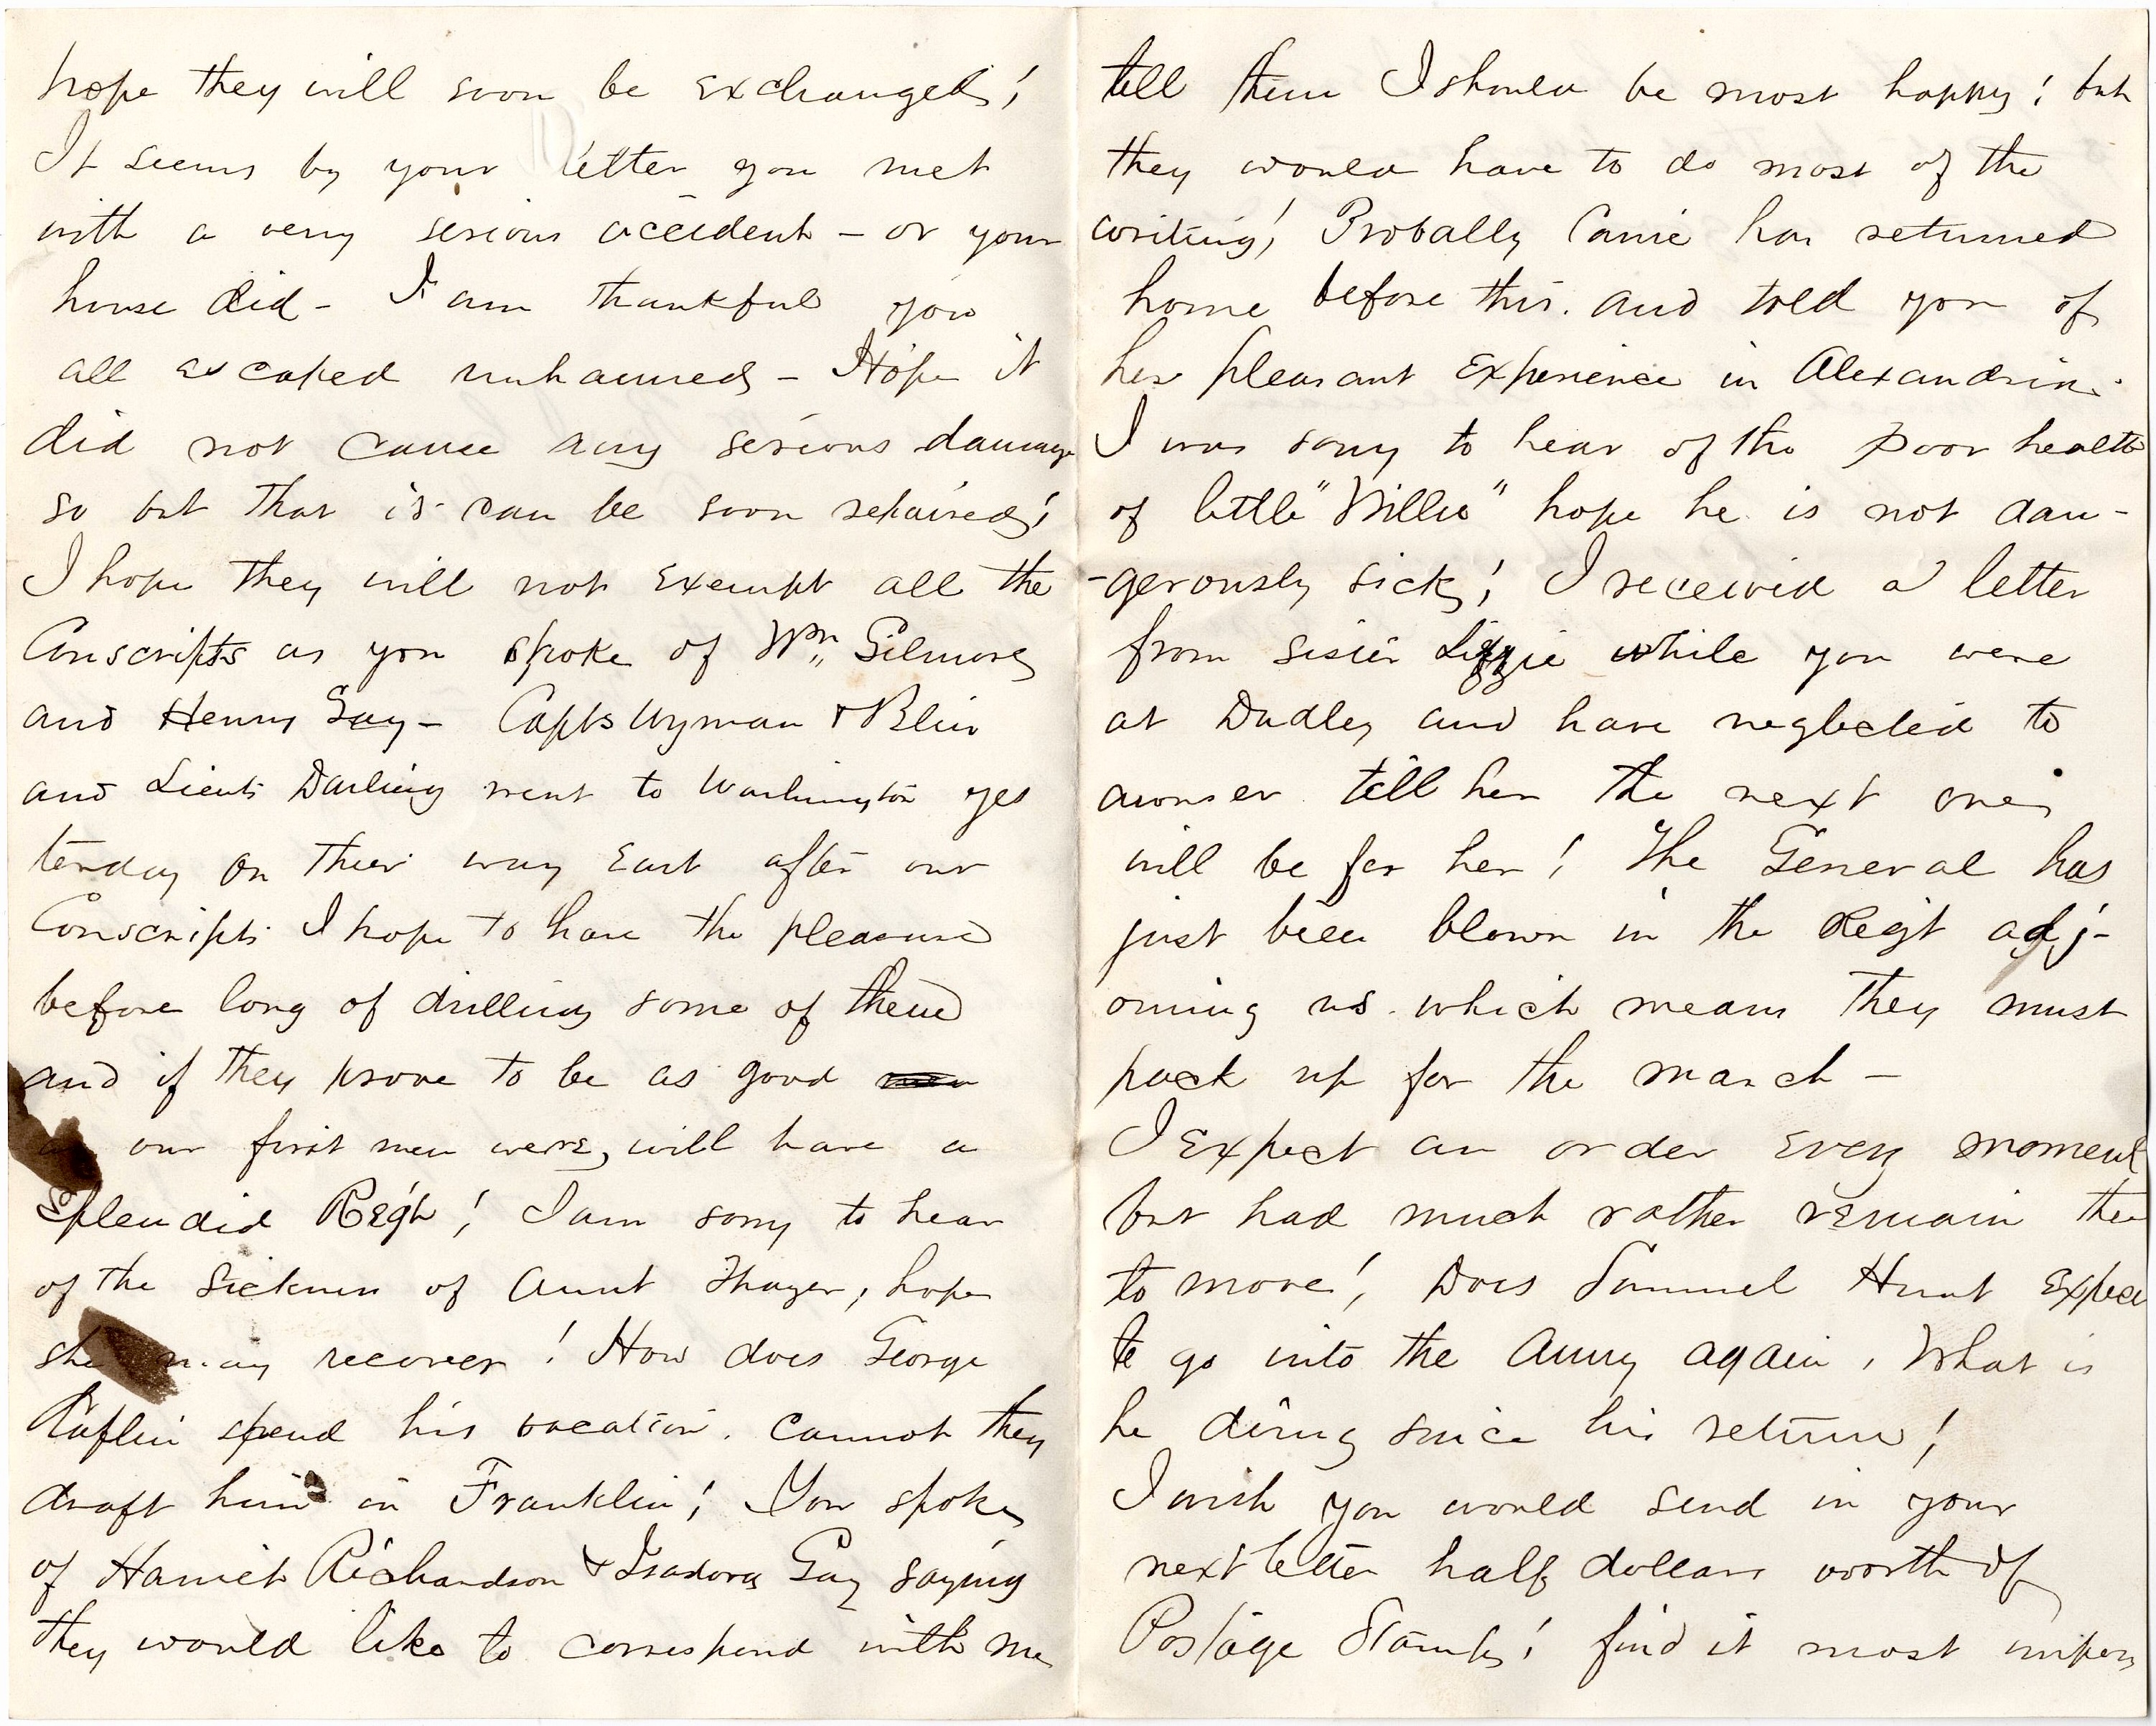 hope they will soon be exchanged!
It seems by your letter you met
with a very serious accident – or your
house did – I am thankful you
all escaped unharmed – Hope it
did not cause any serious damage
so but that is can be soon repaired!
I hope they will not exempt all the
Conscripts as you spoke of Wm. Gilmore
and Henry Gay – Capts Wyman & Blin
and Lieut. Darling went to Washington yes
terday on their way East after our
Conscripts I hope to have the pleasure
before long of drilling some of them
and if they prove to be as good
our first men were, will have a
Splendid Regt! I am sorry to hear
of the sickness of Aunt Thayer, hope
she may recover! How does George
spend his vacation. Cannot they
draft him in Franklin! You spoke
of Harriet Richardson & Isadora Gay saying
they would like to correspond with me
tell them I should be most happy! but
they would have to do most of the
writing! Probally Carrie has returned
home before this. and told you of
her pleasant Experience in Alexandria.
I was sorry to hear of the poor health
of little "Willie" hope he is not dan-
-gerously sick! I received a letter
from sister Lizzie while you were
at Dudley and have neglected to
awnser tell her the next one
will be for her! The General has
just been blown in the Regt adj-
oining us. which means they must
pack up for the march –
I Expect an order Every moment
but had much rather remain then
to move! Does Samuel Hunt Expect
to go into the Army again, What is
he doing since his return!
I wish you would send in your
next letter half dollars worth of
Postage Stamps! find it most impos